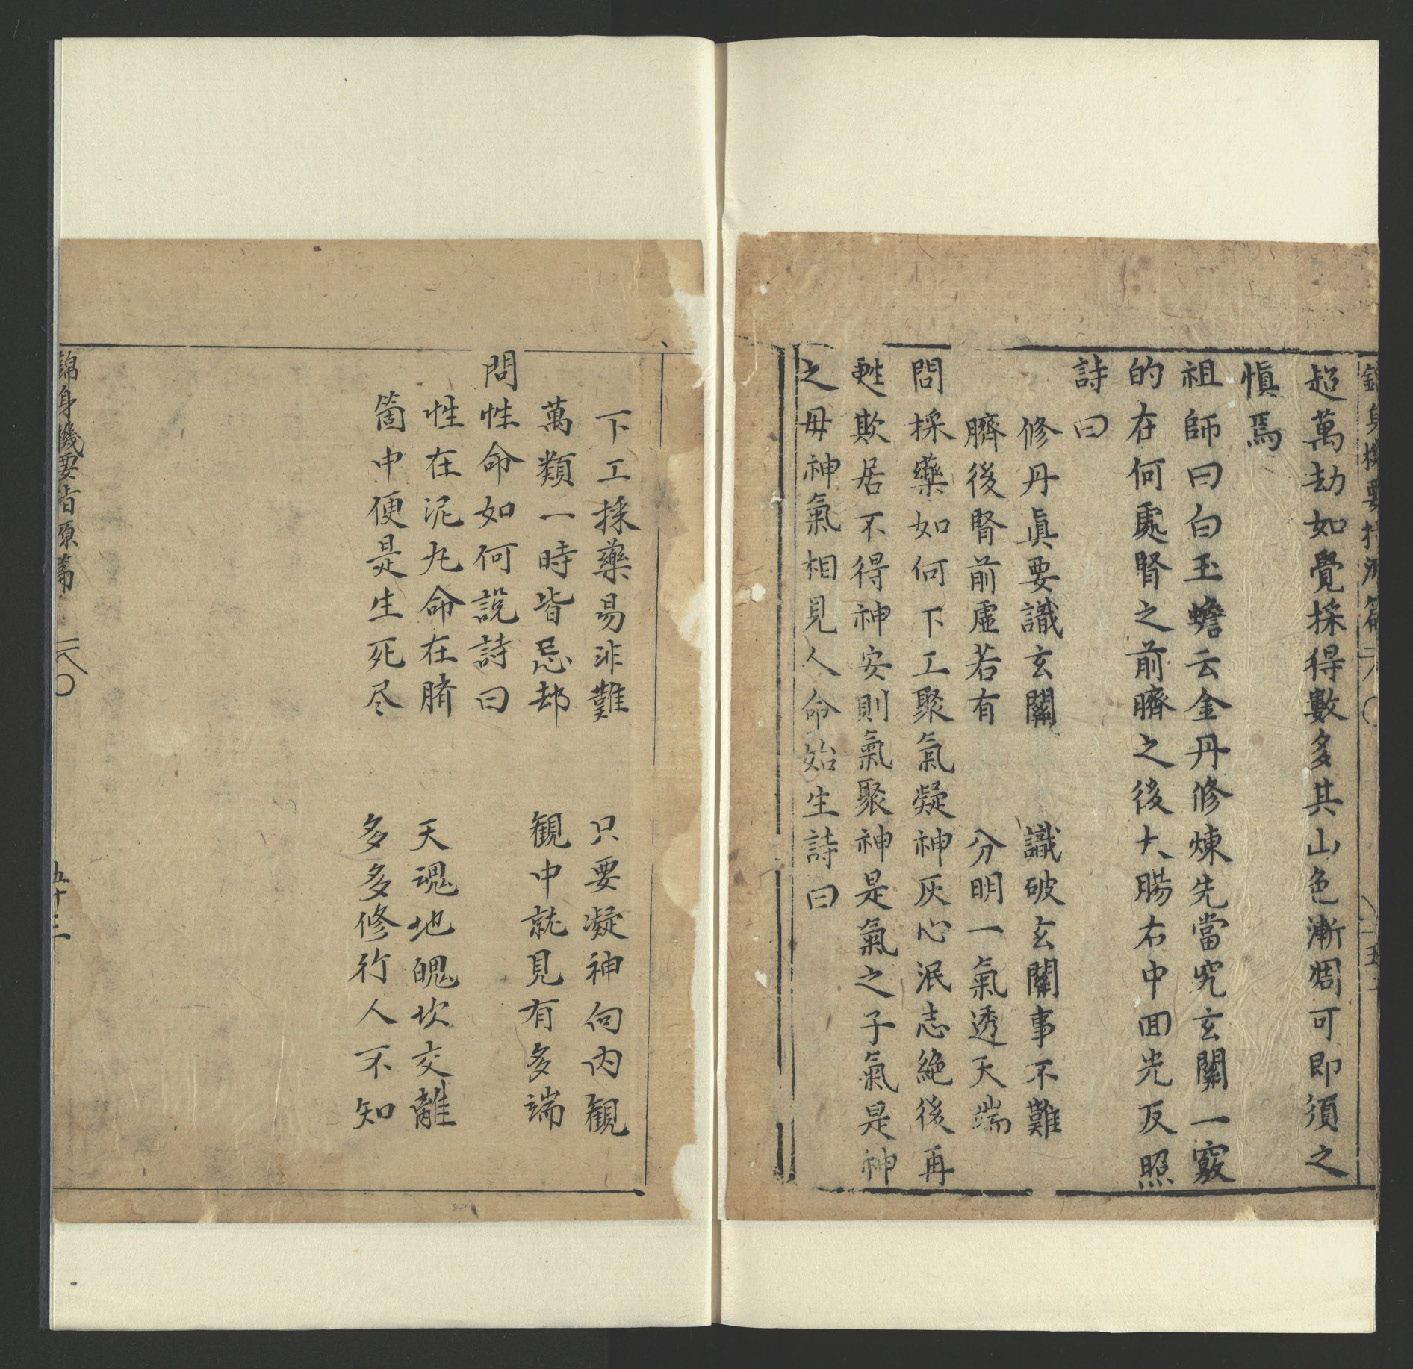 超萬劫如覺採得數多其山色漸凋可即須之
慎焉
祖師曰白玉蟾云金丹修煉先當究玄關一竅
的在何處腎之前臍之後大腸右中面光反照
詩曰
修丹眞要識玄關　識破玄關事不難
臍後腎前虛若有　分明一氣透天端
問採藥如何下工聚氣凝神灰心泯志絶後再
甦欺居不得神安則氣聚神是氣之子氣是神
之母神氣相見人命始生詩曰
下工採藥易非難　只要凝神向内觀
萬類一時皆忘却　観中就見有多端
問性命如何說詩曰
性在泥丸命在臍　天魂地魄坎交離
箇中便是生死尽　多多修行人不知
錦身機要指源篇
五十三